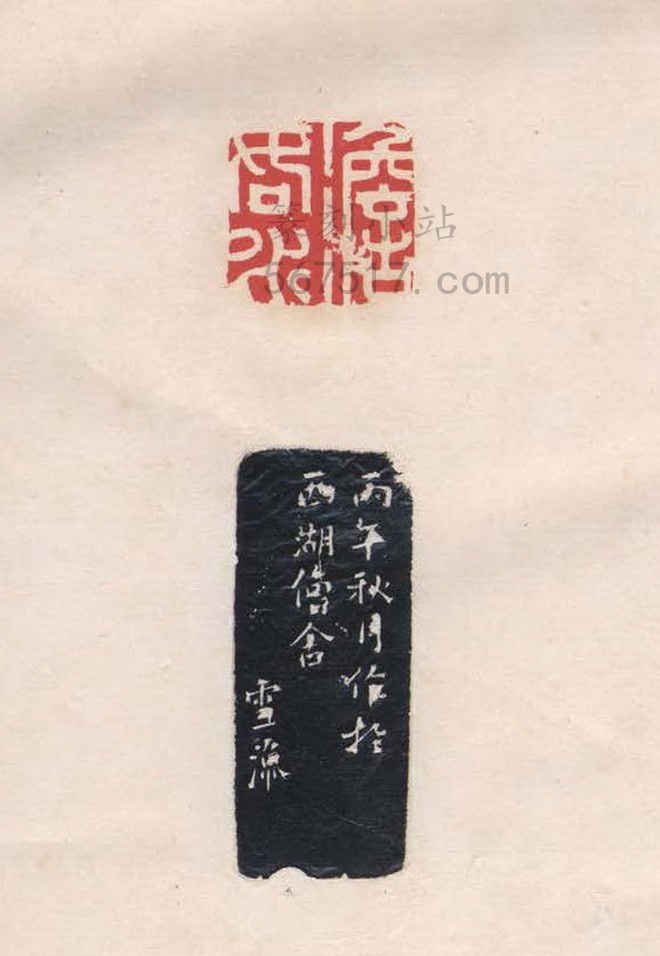 篆刻小站
567517.com
丙午秋月作於
西湖僧舍
雪漁